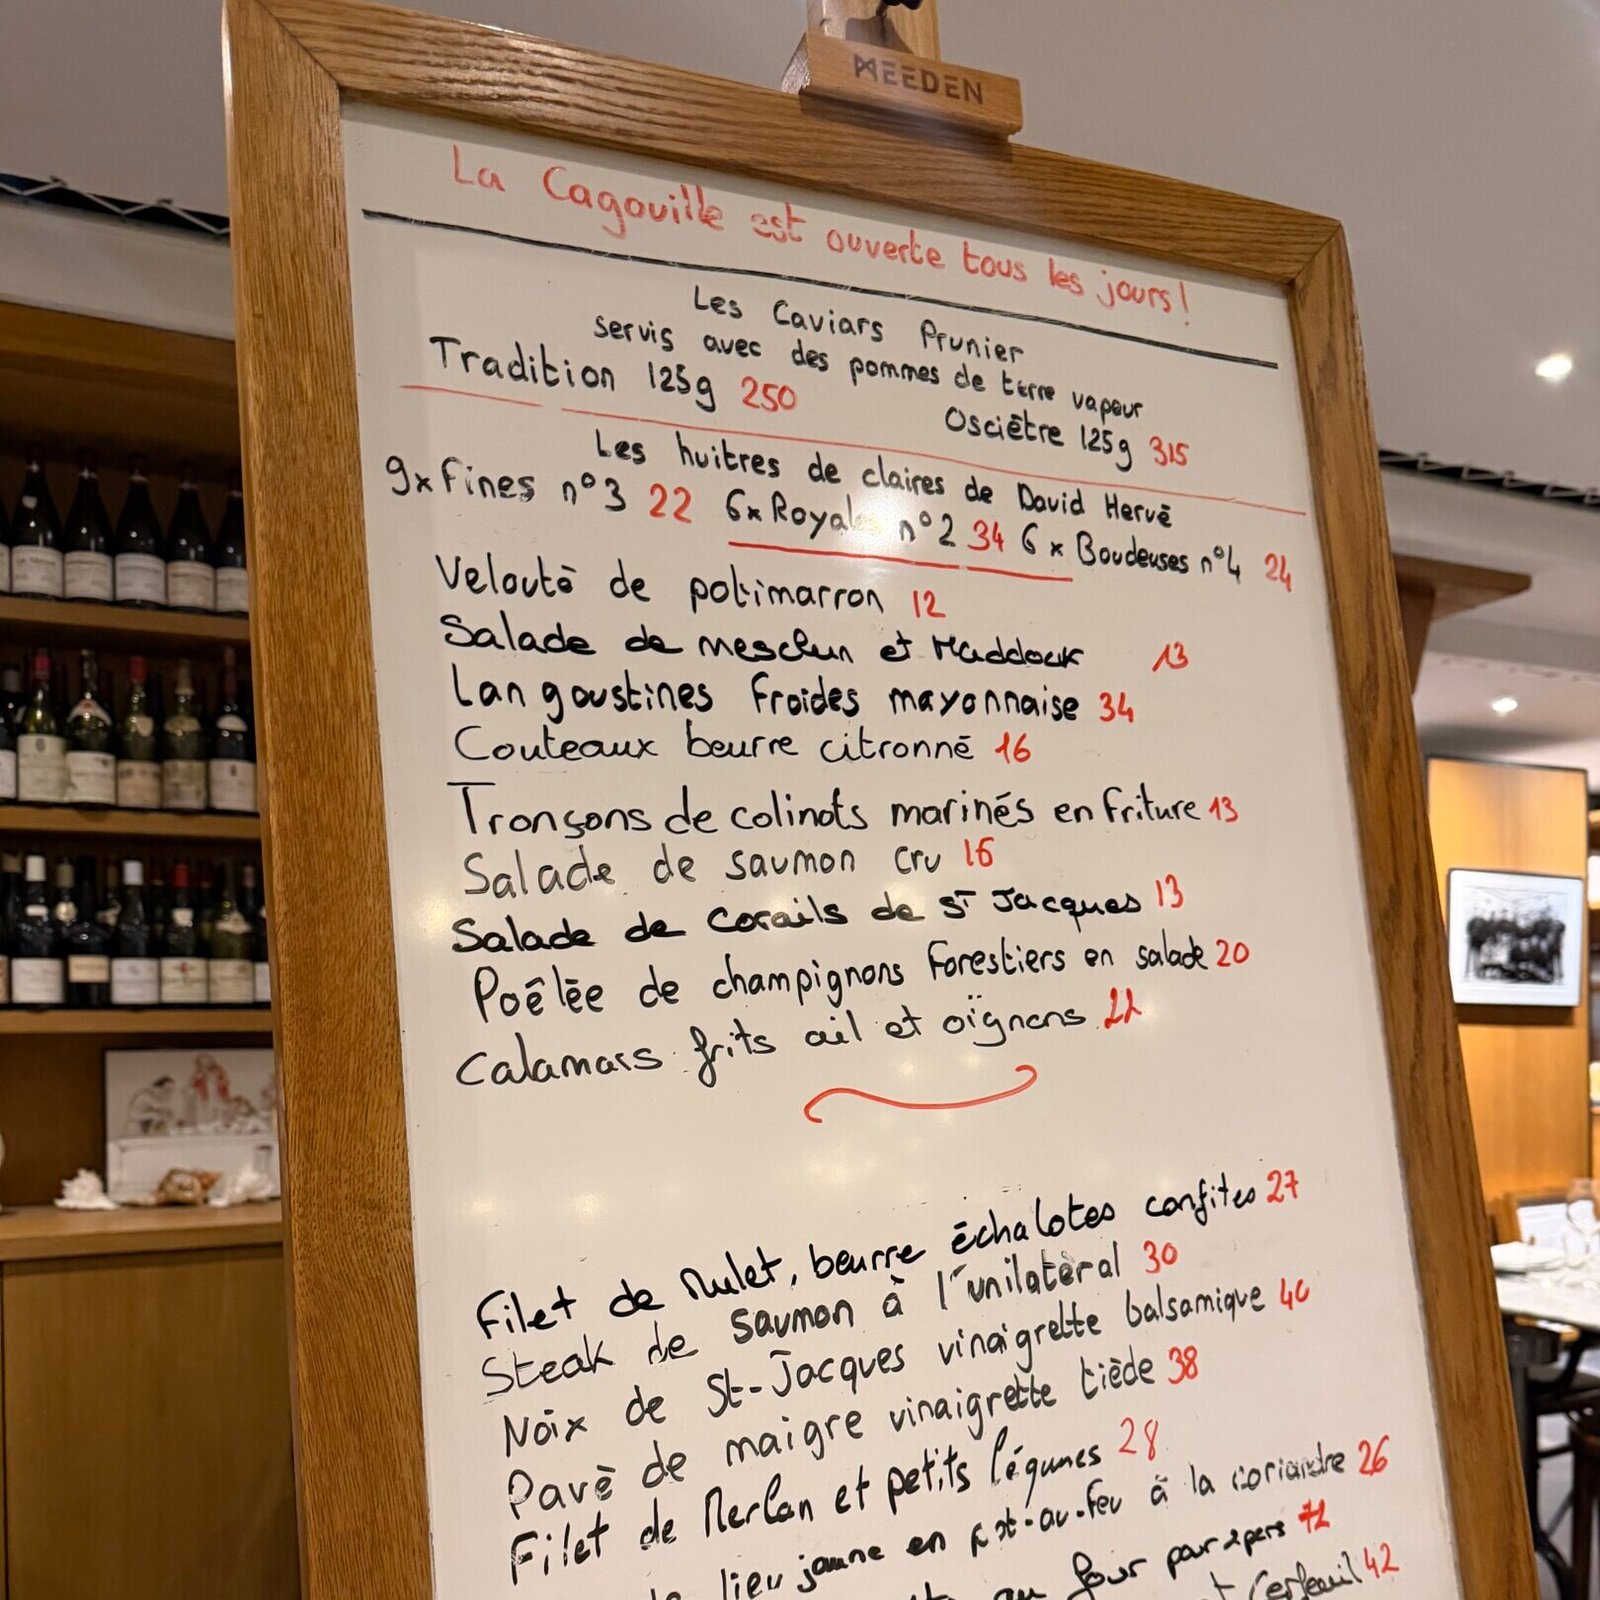 MEEDEN
La Cagouille est ouverte tous les jours!
Les Caviars Prunier
servis avec des pommes de terre vapeur
Tradition 125g 250 Osciètre 125g 315
Les huîtres de claires de David Hervé
9x Fines n°3 22 6x Royales n°2 34 6x Boudeuses n°4 24
Velouté de potimarron 12
Salade de mesclun et Haddock 13
Langoustines froides mayonnaise 34
Couteaux beurre citronné 16
Tronçons de colinots marinés en friture 13
Salade de saumon cru 16
Salade de corails de St Jacques 13
Poêlée de champignons forestiers en salade 20
Calamars frits ail et oïgnons 22
Filet de Mulet, beurre échalotes confites 27
Steak de saumon à l'unilatéral 30
Noix de St-Jacques vinaigrette balsamique 40
Pavé de maigre vinaigrette tiède 38
Filet de Merlan et petits légumes 28
lieu jaune en pot-au-feu à la coriandre 26
au four pour 2 pers 72
Cerfeuil 42